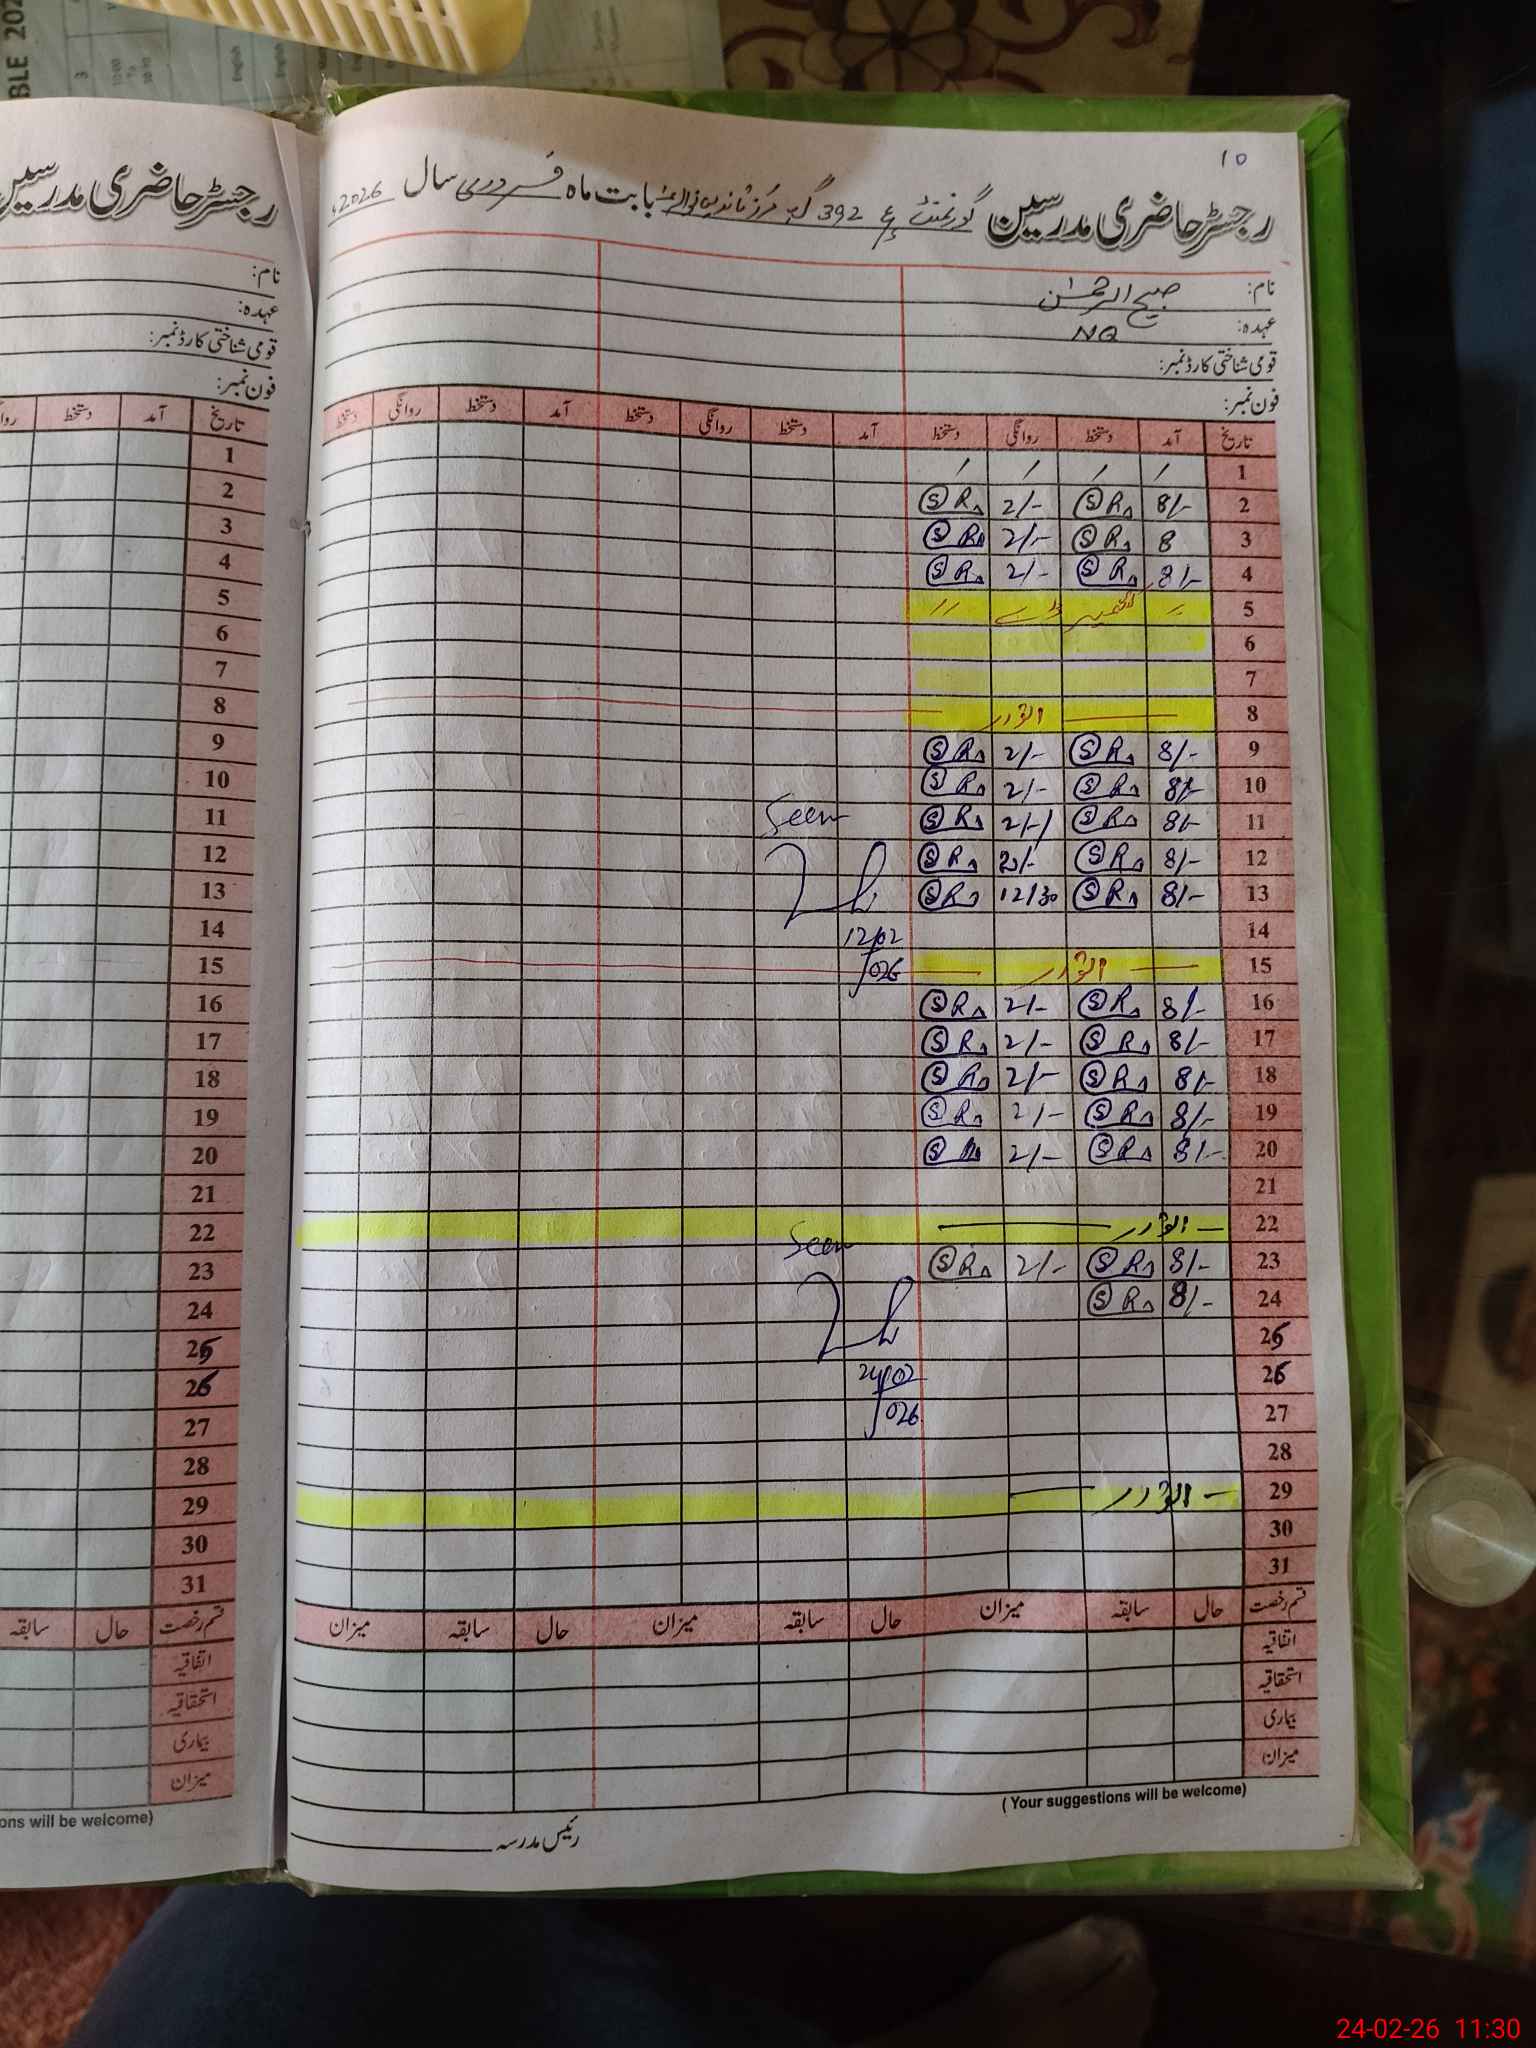 10
رجسٹر حاضری مدرسین گورنمنٹ 392 گ ب بابت ماہ فروری سال 2026ء
نام: صبیح الرحمٰن
عہدہ: NQ
قومی شناختی کارڈ نمبر:
فون نمبر:
تاریخ آمد دستخط روانگی دستخط آمد دستخط روانگی دستخط آمد دستخط روانگی دستخط
1 / / / /
2 8/- SR 2/- SR
3 8 SR 2/- SR
4 8/- SR 2/- SR
5 〃 کشمیر ڈے 〃
6
7
8 اتوار
9 8/- SR 2/- SR
10 8/- SR 2/- SR
11 8/- SR 2/- SR Seen
12 8/- SR 2/- SR
13 8/- SR 12/30 SR
14 12/02
15 اتوار /026
16 8/- SR 2/- SR
17 8/- SR 2/- SR
18 8/- SR 2/- SR
19 8/- SR 2/- SR
20 8/- SR 2/- SR
21
22 اتوار Seen
23 8/- SR 2/- SR
24 8/- SR
25
26 24/02
27 /026
28
29 اتوار
30
31
قسم رخصت حال سابقہ میزان حال سابقہ میزان حال سابقہ میزان
اتفاقیہ
استحقاقیہ
بیماری
میزان
( Your suggestions will be welcome)
رئیس مدرسہ
رجسٹر حاضری مدرسین
نام:
عہدہ:
قومی شناختی کارڈ نمبر:
فون نمبر:
تاریخ آمد دستخط
1
2
3
4
5
6
7
8
9
10
11
12
13
14
15
16
17
18
19
20
21
22
23
24
25
26
27
28
29
30
31
قسم رخصت حال سابقہ
اتفاقیہ
استحقاقیہ
بیماری
میزان
ons will be welcome)
BLE 202
3
English
English
24-02-26 11:30